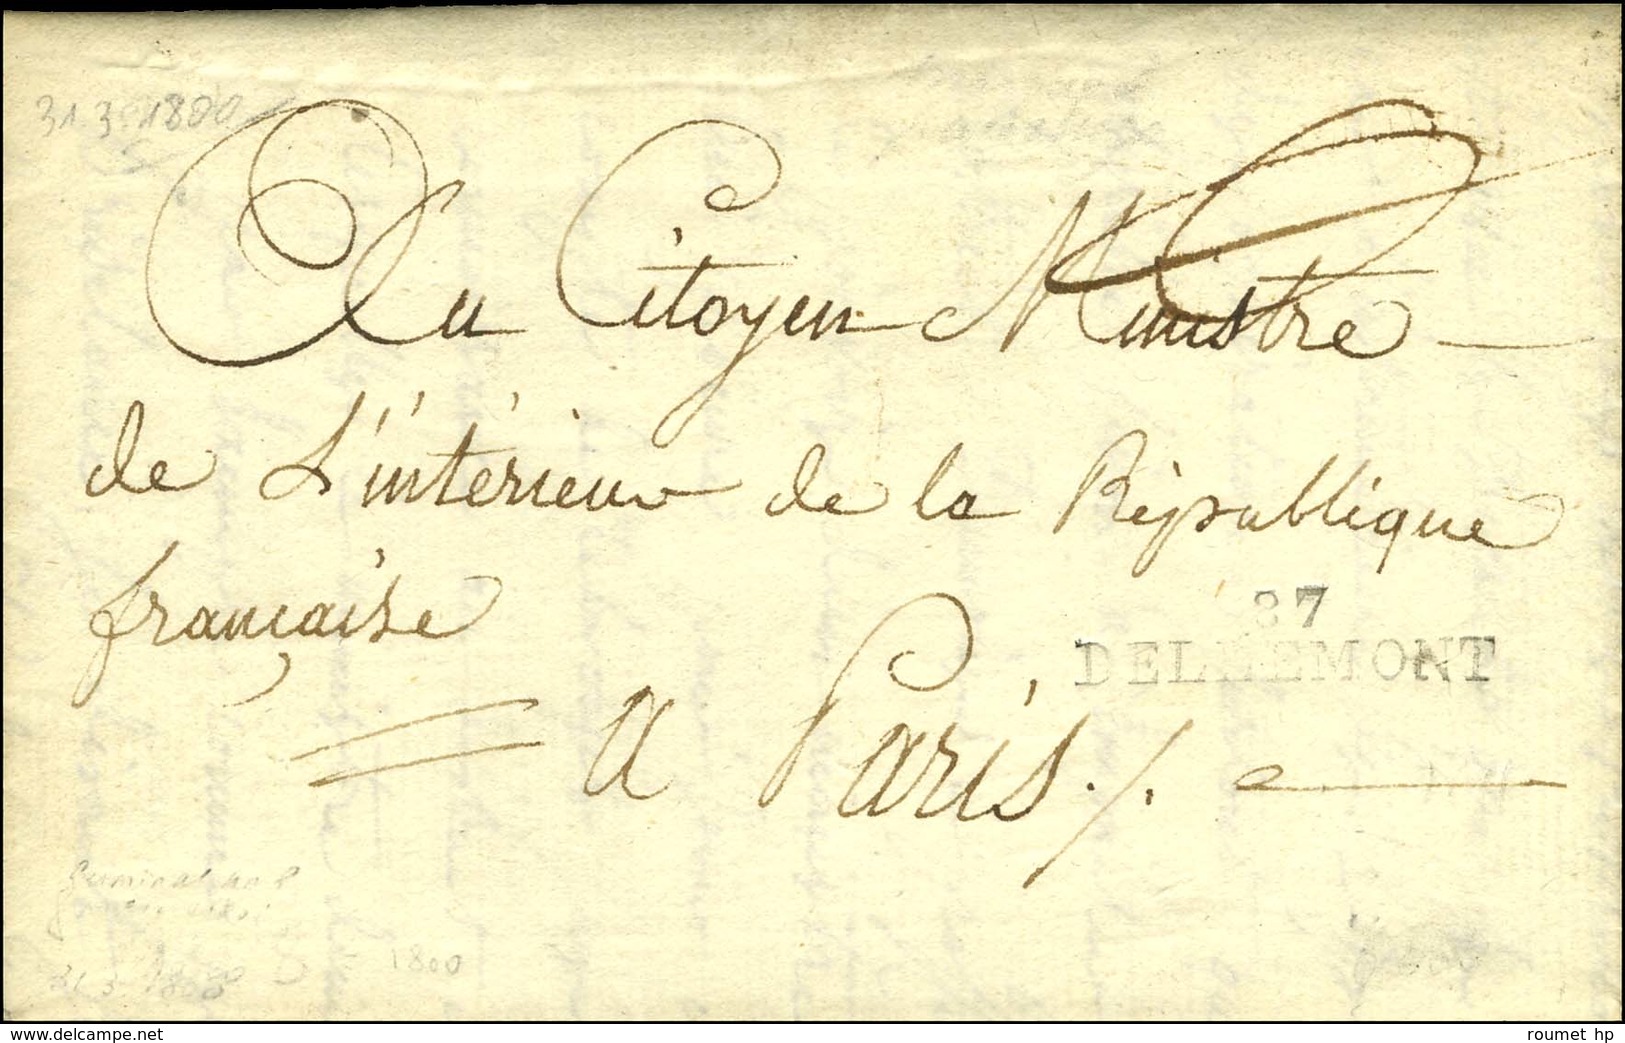 31.3.1800
Au Citoyen Ministre
de L'intérieur de la République
française
87
DELLEMONT
= a Paris ./.
31 3 1800
= 1800
delcampe.net
roumet hp